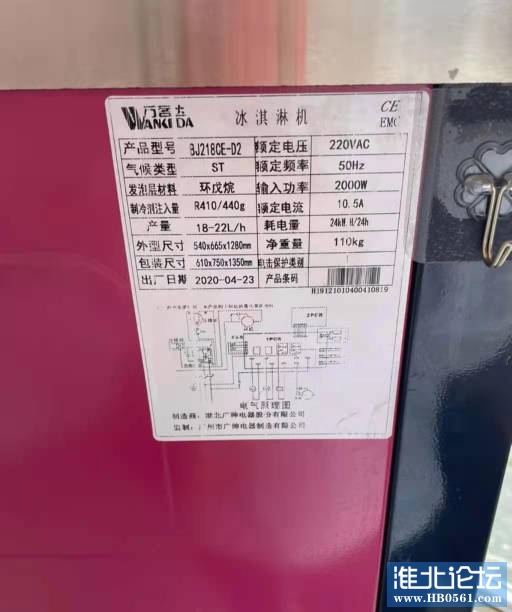 万客达 冰淇淋机 CE
WANKEDA EMC
产品型号 BJ218CE-D2 额定电压 220VAC
气候类型 ST 额定频率 50Hz
发泡层材料 环戊烷 输入功率 2000W
制冷剂注入量 R410/440g 额定电流 10.5A
产量 18-22L/h 耗电量 24kW.H/24h
外型尺寸 540x665x1280mm 净重量 110kg
包装尺寸 610x750x1350mm 电击保护类别 I
出厂日期 2020-04-23 产品条码
H19121010400410819
2PCB
1PCB
电气原理图
制造商：淮北广绅电器股份有限公司
监制：广州市广绅电器制造有限公司
淮北论坛
www.HB0561.com